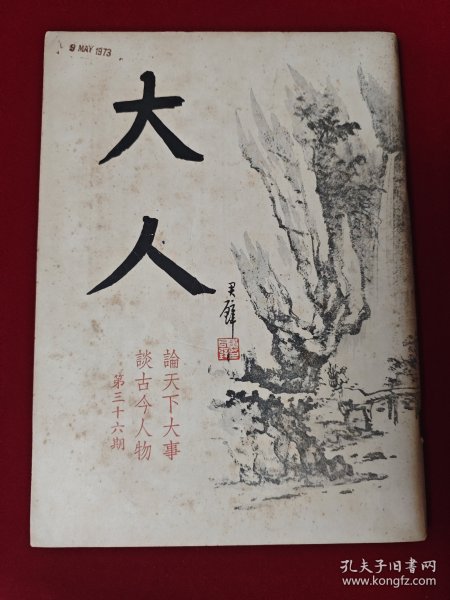 9 MAY 1973
大人
君璧
論天下大事
談古今人物
第三十六期
孔夫子旧书网
www.kongfz.com